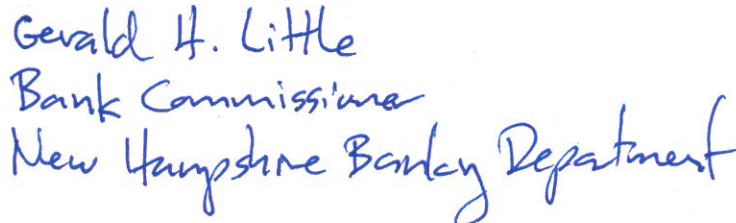 Gerald H. Little
Bank Commissioner
New Hampshire Banking Department